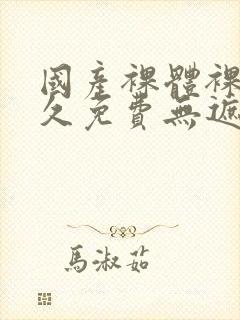 國產裸體裸
久免費無遮
馬淑茹